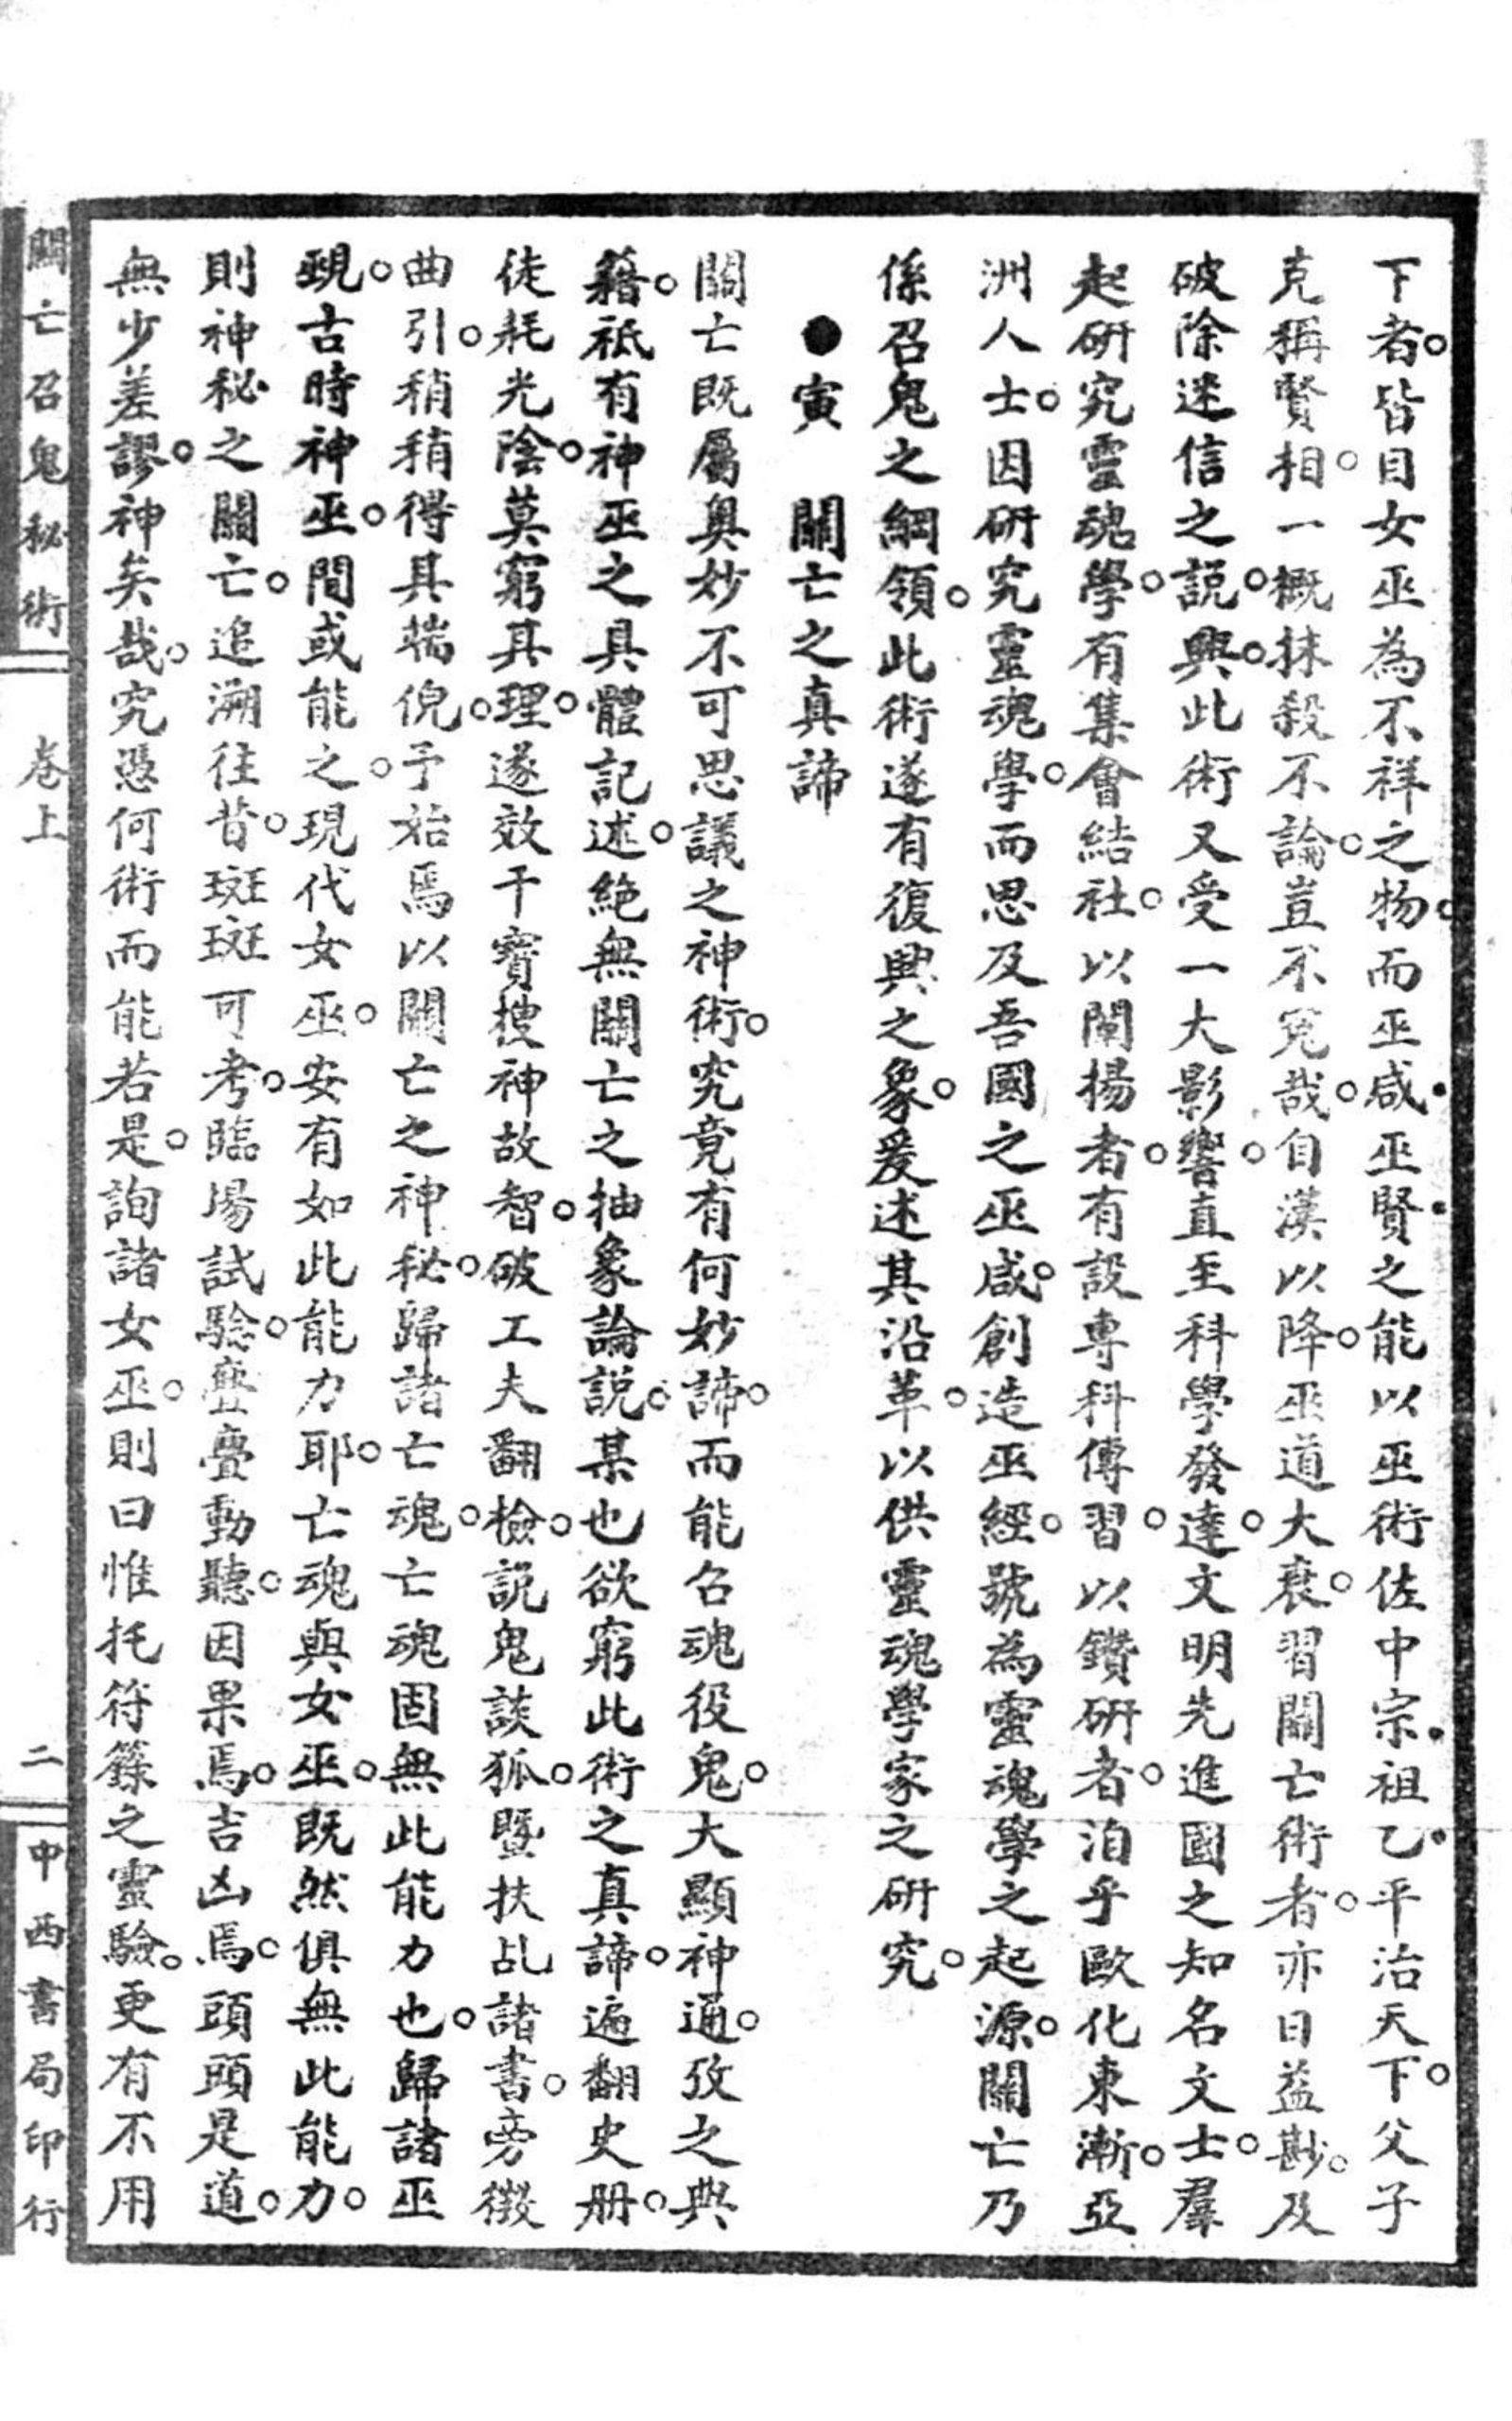 下者。皆目女巫為不祥之物。而巫咸巫賢之能以巫術佐中宗祖乙平治天下。父子
克稱賢相。一概抹殺不論。豈不冤哉。自漢以降。巫道大衰。習關亡術者。亦日益尠。及
破除迷信之説。興。此術又受一大影響。直至科學發達。文明先進國之知名文士。羣
起研究靈魂學。有集會結社。以闡揚者。有設專科傳習。以鑽研者。洎乎歐化東漸。亞
洲人士。因研究靈魂學。而思及吾國之巫咸。創造巫經。號為靈魂學之起源。關亡乃
係召鬼之綱領。此術遂有復興之象。爰述其沿革。以供靈魂學家之研究。
●寅　關亡之真諦
關亡既屬奥妙不可思議之神術。究竟有何妙諦。而能召魂役鬼。大顯神通。攷之典
籍。祗有神巫之具體記述。絶無關亡之抽象論説。某也欲窮此術之真諦。遍翻史册。
徒耗光陰。莫窮其理。遂效干寶搜神故智。破工夫翻檢。説鬼談狐。暨扶乩諸書。旁徵
曲引。稍稍得其端倪。予始焉以關亡之神秘。歸諸亡魂。亡魂固無此能力也。歸諸巫
覡。古時神巫。間或能之。現代女巫。安有如此能力耶。亡魂與女巫。既然俱無此能力。
則神秘之關亡。追溯往昔。斑斑可考。臨場試驗。亹亹動聽。因果焉。吉凶焉。頭頭是道。
無少差謬。神矣哉。究憑何術而能若是。詢諸女巫。則曰惟托符籙之靈驗。更有不用
關亡召鬼秘術　卷上　二　中西書局印行